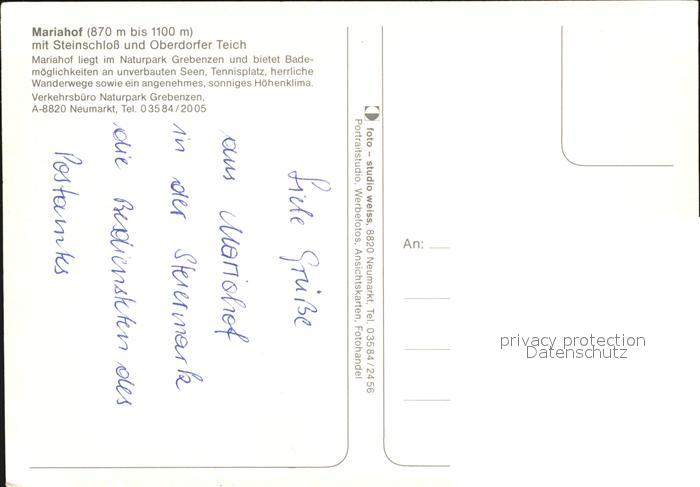 Mariahof (870 m bis 1100 m)
mit Steinschloß und Oberdorfer Teich
Mariahof liegt im Naturpark Grebenzen und bietet Bade-
möglichkeiten an unverbauten Seen, Tennisplatz, herrliche
Wanderwege sowie ein angenehmes, sonniges Höhenklima.
Verkehrsbüro Naturpark Grebenzen,
A-8820 Neumarkt, Tel. 03584/2005
Liebe Grüße
aus Mariahof
in der Steiermark
die Bediensteten des
Postamtes
foto – studio weiss, 8820 Neumarkt, Tel. 03584/2456
Portraitstudio, Werbefotos, Ansichtskarten, Fotohandel
An:
privacy protection
Datenschutz